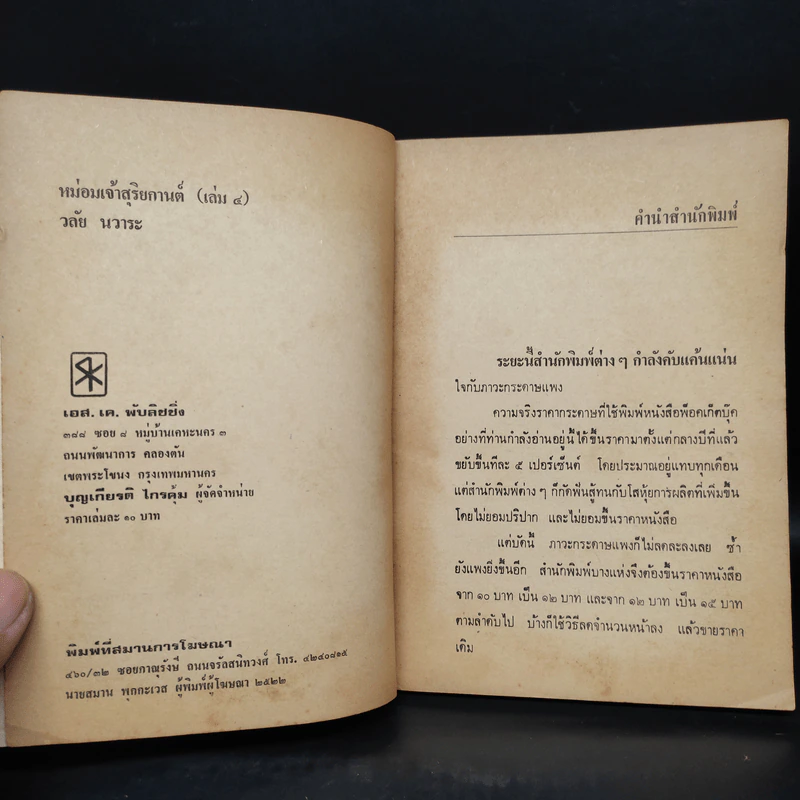 หม่อมเจ้าสุริยกานต์ (เล่ม ๔)
วลัย นวาระ
เอส. เค. พับลิชชิ่ง
๓๘๘ ซอย ๘ หมู่บ้านเคหะนคร ๓
ถนนพัฒนาการ คลองตัน
เขตพระโขนง กรุงเทพมหานคร
บุญเกียรติ ไกรคุ้ม ผู้จัดจำหน่าย
ราคาเล่มละ ๑๐ บาท
พิมพ์ที่สมานการโฆษณา
๔๖๐/๓๒ ซอยภาณุรังษี ถนนจรัลสนิทวงศ์ โทร. ๔๒๔๐๘๑๕
นายสมาน พุกกะเวส ผู้พิมพ์ผู้โฆษณา ๒๕๒๒
คำนำสำนักพิมพ์
ระยะนี้สำนักพิมพ์ต่าง ๆ กำลังคับแค้นแน่น
ใจกับภาวะกระดาษแพง
ความจริงราคากระดาษที่ใช้พิมพ์หนังสือพ็อคเก็ตบุ๊ค
อย่างที่ท่านกำลังอ่านอยู่นี้ได้ขึ้นราคามาตั้งแต่กลางปีที่แล้ว
ขยับขึ้นทีละ ๕ เปอร์เซ็นต์ โดยประมาณอยู่แทบทุกเดือน
แต่สำนักพิมพ์ต่าง ๆ ก็กัดฟันสู้ทนกับโสหุ้ยการผลิตที่เพิ่มขึ้น
โดยไม่ยอมปริปาก และไม่ยอมขึ้นราคาหนังสือ
แต่บัดนี้ ภาวะกระดาษแพงก็ไม่ลดละลงเลย ซ้ำ
ยังแพงยิ่งขึ้นอีก สำนักพิมพ์บางแห่งจึงต้องขึ้นราคาหนังสือ
จาก ๑๐ บาท เป็น ๑๒ บาท และจาก ๑๒ บาท เป็น ๑๕ บาท
ตามลำดับไป บ้างก็ใช้วิธีลดจำนวนหน้าลง แล้วขายราคา
เดิม